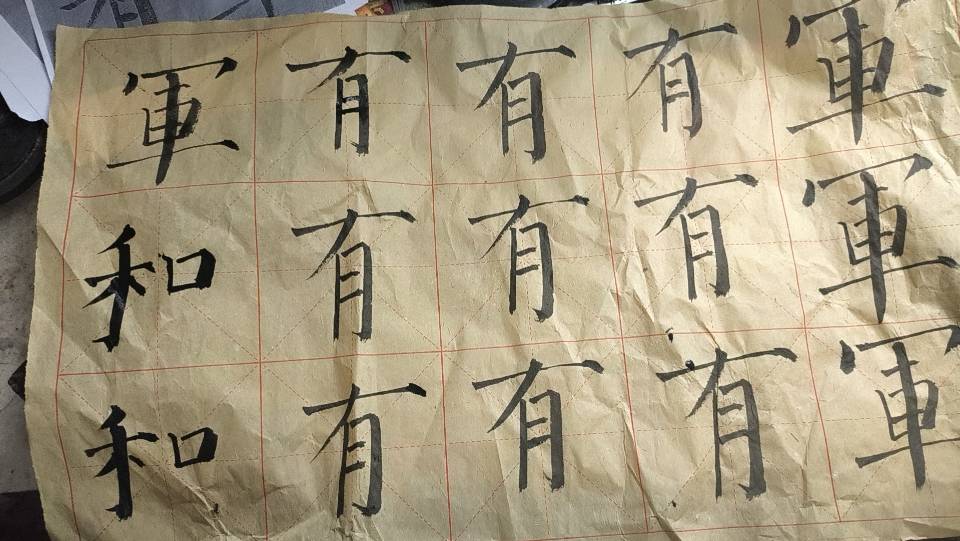 軍有有有軍
和有有有軍
和有有有軍